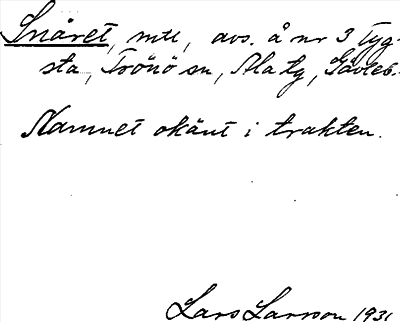 Snåret, mtl, avs. å nr 3 Tyg-
sta, Trönö sn, Ala tg, Gävleb.
Namnet okänt i trakten.
Lars Larsson 1931